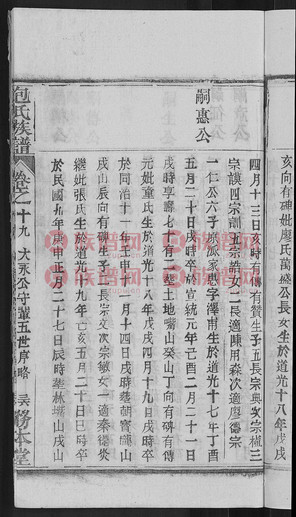 亥向有碑妣廖氏萬盛公長女生於道光十八年戊戌
四月十三日亥時有傳有贊生子五長宗典次宗概三
宗謨四宗謝五宗誥女二長適陳用森次適廖德宗
嗣惠公
一仁公六子族派家惠字澤甫生於道光十七年丁酉
五月二十日戌時卒於宣統元年己酉二月二十一日
戌時享壽七十有三葬土地嘴山癸山丁向有碑有傳
元妣童氏生於道光十八年戊戌四月十九日戌時卒
於同治十一年壬申十一月十四日戌時葬朝寶衝山
戌山辰向有碑生子二長宗文次宗敏女一適秦德炎
繼妣張氏生於道光十九年己亥五月二十日巳時卒
於民國九年庚申正月二十七日辰時葬林場山戌山
包氏族譜
卷之十九
大永公守輩五世序略
務本堂